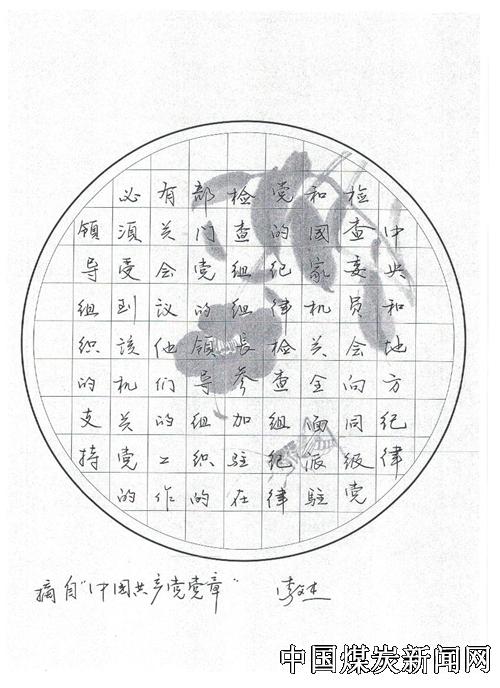 中央和地方纪律
检查委员会向同级党
和国家机关全面派驻
党的纪律检查组纪律
检查组组長参加驻在
部门党的领导组织的
有关会议他们的工作
必须受到该机关党的
领导组织的支持
摘自"中国共产党党章" 李文杰
中国煤炭新闻网